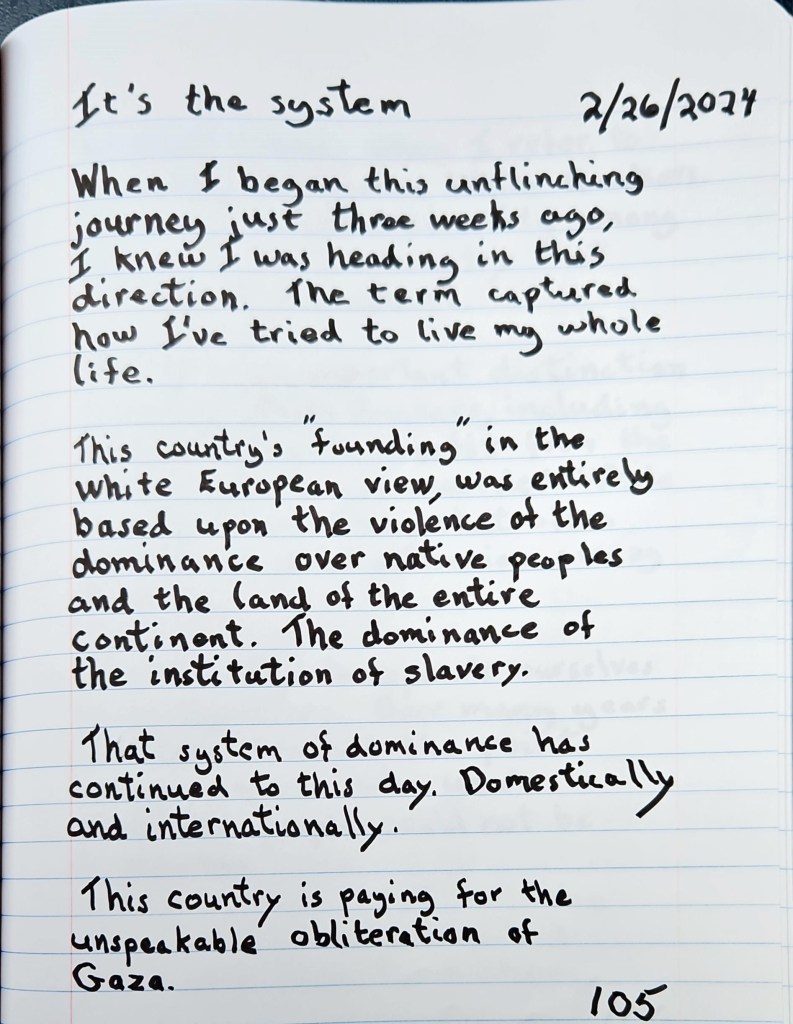 It's the system 2/26/2024
When I began this unflinching
journey just three weeks ago,
I knew I was heading in this
direction. The term captured
how I've tried to live my whole
life.
This country's "founding" in the
white European view, was entirely
based upon the violence of the
dominance over native peoples
and the land of the entire
continent. The dominance of
the institution of slavery.
That system of dominance has
continued to this day. Domestically
and internationally.
This country is paying for the
unspeakable obliteration of
Gaza.
105